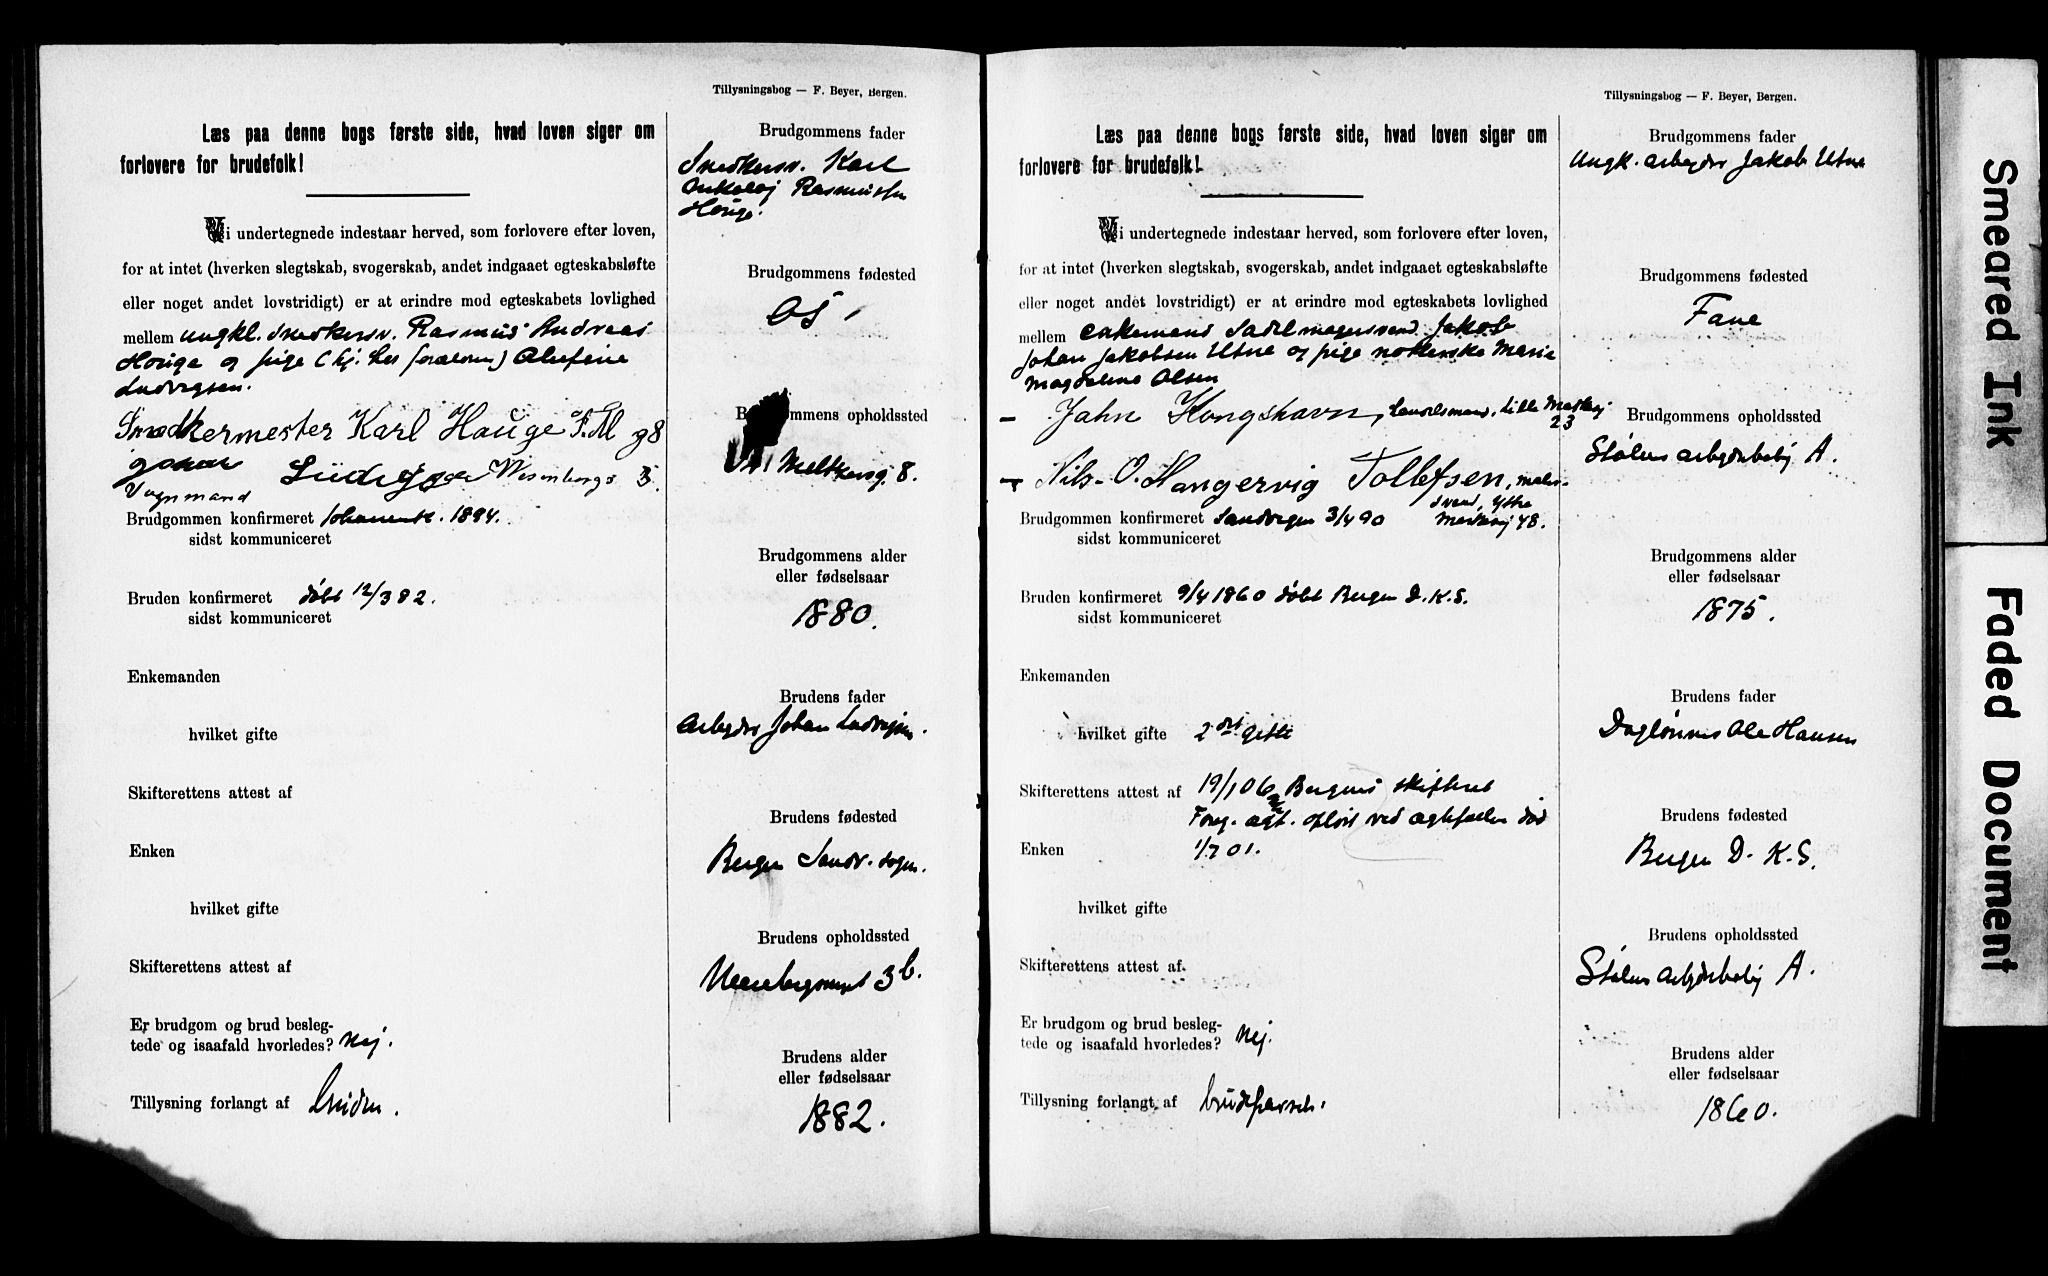 Tillysningsbog — F. Beyer, Bergen.
Læs paa denne bogs første side, hvad loven siger om
forlovere for brudefolk!
Vi undertegnede indestaar herved, som forlovere efter loven,
for at intet (hverken slegtskab, svogerskab, andet indgaaet egteskabsløfte
eller noget andet lovstridigt) er at erindre mod egteskabets lovlighed
mellem ungkl. snedkersv. Rasmus Andreas
Houge og pige (hj. hos forældren)
Ludvigsen.
Snedkermester Karl Hauge
Vognmand
Brudgommen konfirmeret Johannesk. 1894.
sidst kommuniceret
Bruden konfirmeret døbt 12/3 82.
sidst kommuniceret
Enkemanden
hvilket gifte
Skifterettens attest af
Enken
hvilket gifte
Skifterettens attest af
Er brudgom og brud besleg-
tede og isaafald hvorledes? Nej.
Tillysning forlangt af bruden.
Brudgommens fader
Snedkersv. Karl
Nikolaj Rasmussen
Houge.
Brudgommens fødested
Os
Brudgommens opholdssted
8.
Brudgommens alder
eller fødselsaar
1880.
Brudens fader
Arbejder Johan Ludvigsen.
Brudens fødested
Bergen Sandv. sogn.
Brudens opholdssted
3b.
Brudens alder
eller fødselsaar
1882.
Tillysningsbog — F. Beyer, Bergen.
Læs paa denne bogs første side, hvad loven siger om
forlovere for brudefolk!
Vi undertegnede indestaar herved, som forlovere efter loven,
for at intet (hverken slegtskab, svogerskab, andet indgaaet egteskabsløfte
eller noget andet lovstridigt) er at erindre mod egteskabets lovlighed
mellem enkemand Sadelmagersvend Jakob
Johan Jakobsen Utne og pige Marie
Magdalene Olsen
— Jahn Kongshavn, Lille Markvej
23
— Nils O. Hangervig Tollefsen, maler-
svend, Ytre
Markvej 48.
Brudgommen konfirmeret Sandvigen 3/4 90
sidst kommuniceret
Bruden konfirmeret 9/4 1860 døbt Bergen D.K.S.
sidst kommuniceret
Enkemanden
hvilket gifte 2det gifte
Skifterettens attest af 19/1 06 Bergens skifteret
Foreg. egt. opløst ved egtefælles død
1/7 01.
Enken
hvilket gifte
Skifterettens attest af
Er brudgom og brud besleg-
tede og isaafald hvorledes? Nej.
Tillysning forlangt af brudeparret.
Brudgommens fader
Ungk. arbejder Jakob Utne
Brudgommens fødested
Fane
Brudgommens opholdssted
Stølens arbejderbolig A.
Brudgommens alder
eller fødselsaar
1875.
Brudens fader
Daglønner Ole Hansen
Brudens fødested
Bergen D. K. S.
Brudens opholdssted
Stølens arbejderbolig A.
Brudens alder
eller fødselsaar
1860.
Smeared Ink
Faded Document